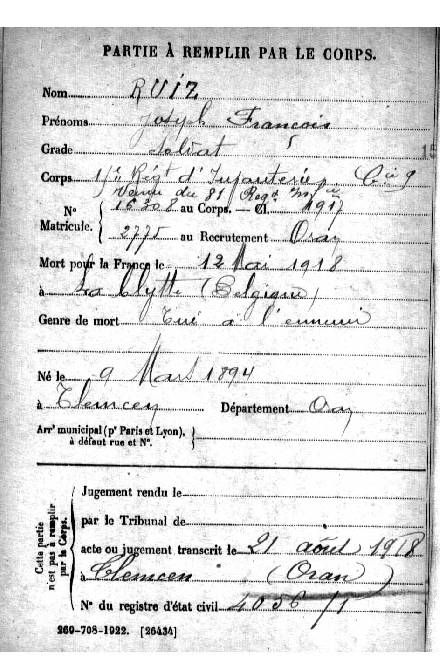 PARTIE À REMPLIR PAR LE CORPS.
Nom RUIZ
Prénoms Joseph Francois
Grade Soldat
Corps 1er Régt d'Infanterie, Cie 9
Venu du 81 Regt
N° 16308 au Corps. — Cl. 1917
Matricule. 2775 au Recrutement Oran
Mort pour la France le 12 Mai 1918
à La Clytte (Belgique)
Genre de mort Tué à l'ennemi
Né le 9 Mars 1894
à Tlemcen Département Oran
Arrt municipal (pr Paris et Lyon),
à défaut rue et N°.
Cette partie
n'est pas à remplir
par le Corps.
Jugement rendu le
par le Tribunal de
acte ou jugement transcrit le 21 août 1918
à Tlemcen (Oran)
N° du registre d'état civil 4056/1
260-708-1922. [26434]